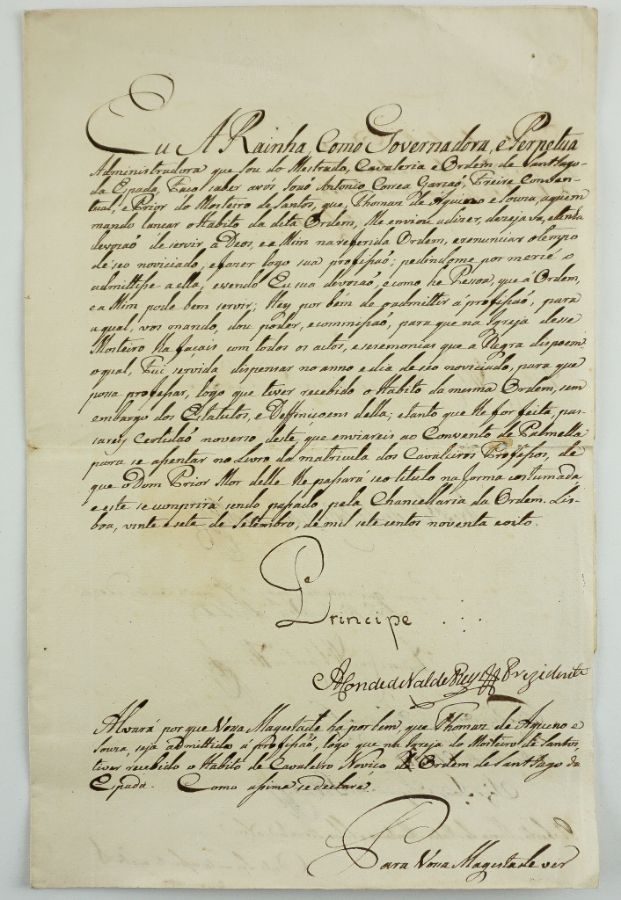 Eu A Rainha, Como Governadora, e Perpetua
Administradora que sou do Mestrado, Cavalaria e Ordem de Sant Iago
da Espada, Faço saber avós João Antonio Correa Garçaõ, Freire Conven-
tual, e Prior do Mosteiro de Santos, que, Thomaz de Aquino e Souza, aquem
mando lancar o Habito da dita Ordem, Me enviou adizer, dezejava, e tenta
devoçao de servir a Deos, e a Mim na referida Ordem, e renunciar o tempo
de seo noviciado, e fazer logo sua profissaõ; pedindome por mercê o
admittisse a ella; e vendo Eu sua devoçaõ, e como he Pessoa, que á Ordem,
e a Mim pode bem servir; Hey por bem de o admittir á profissaõ, para
a qual, vos mando, dou poder, e commissaõ, para que na Igreja desse
Mosteiro lha façais com todos os actos, e seremonias que a Regra dispoem
o qual, Fui servida dispensar no anno e dia de seo noviciado, para que
possa professar, logo que tiver recebido o Habito da mesma Ordem, sem
embargo dos Estatutos, e Deffiniçoens della; e tanto que lhe for feita, pas-
sareis Certidaõ no verso deste, que enviareis ao Convento de Palmella
para se assentar no Livro da matricula dos Cavaleiros Professos, de
que o Dom Prior Mor delle lhe passará seo titulo na forma costumada
e este se comprirá sendo passado, pela Chancellaria da Ordem. Lis-
boa, vinte e sete de Setembro, de mil sete centos noventa e oito.
Principe
Conde de Val de Reys Prezidente
Alvará por que Vossa Magestade ha por bem, que Thomaz de Aquino e
Souza, seja admittido á profissaõ, logo que na Igreja do Mosteiro de Santos,
tiver recebido o Habito de Cavaleiro Noviço da Ordem de Sant Iago da
Espada. Como assima se declara.
Para Vossa Magestade ver